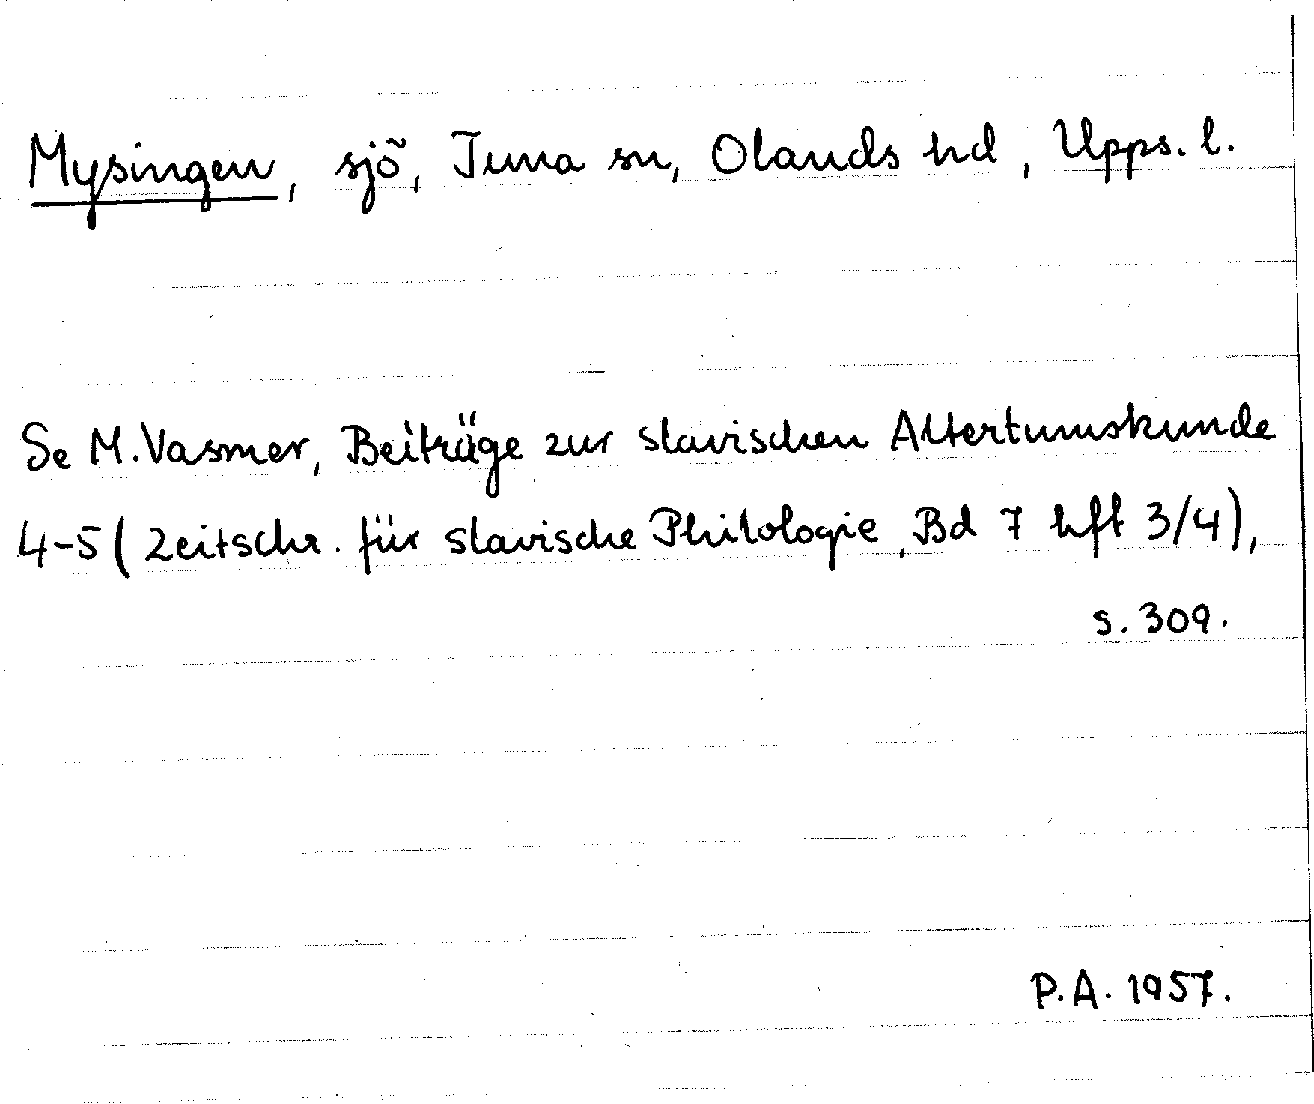 Mysingen, sjö, Tuna sn, Olands hd, Upps. l.
Se M. Vasmer, Beiträge zur slavischen Altertumskunde
4-5 (Zeitschr. für slavische Philologie, Bd 7 hft 3/4),
s. 309.
P.A. 1957.